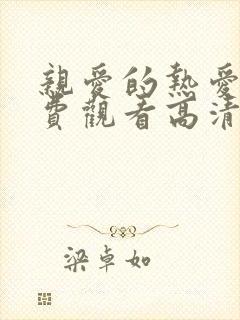 親愛的熱愛
費觀看高清
梁卓如